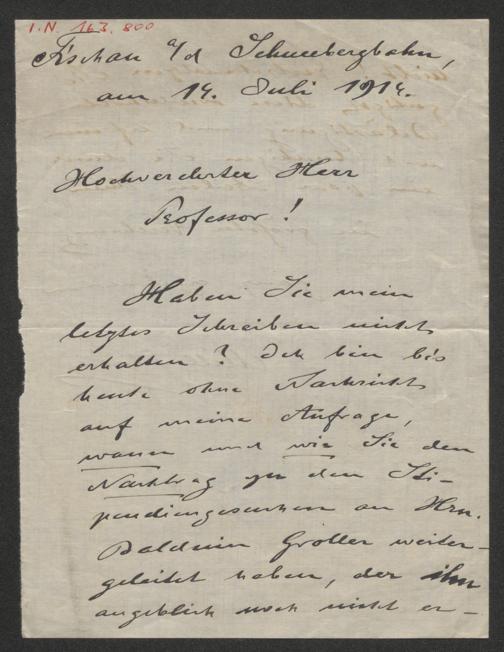 I.N. 163.800
Fischau a/d Schneebergbahn,
am 14. Juli 1914.
Hochverehrter Herr
Professor!
Haben Sie mein
letztes Schreiben nicht
erhalten? Ich bin bis
heute ohne Nachricht
auf meine Anfrage,
wann und wie Sie den
Nachtrag zu den Sti-
pendiengesuchen an Hrn.
Balduin Groller weiter-
geleitet haben, der ihn
angeblich noch nicht er-